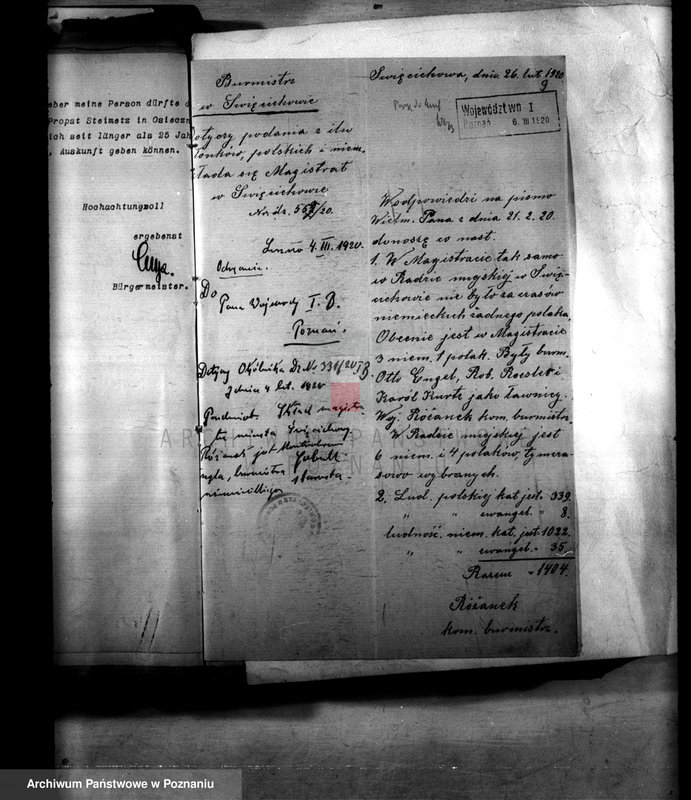 eber meine Person dürfte d
Propst Steimetz in Osieczn
ich seit länger als 25 Jah
, Auskunft geben können.
Hochachtungsvoll
ergebenst
Bürgermeister.
Burmistrz
w Święcichowie
otyczy podania z ilu
łonków, polskich i niem.
kłada się Magistrat
w Święcichowie
Leszno 4. III. 1920.
Do
Pana Wojewody I. B.
Poznań.
Dotyczy Okólnika Dz. No 331/20 I B
z dnia 4 lut. 1920
Przedmiot. Skład magistra
tu miasta Święcichowy
Różanek jest
burmistrz
starosta
Święcichowa, dnia 26. lut. 1920
9
Województwo I
Poznań 6. III 1920
W odpowiedzi na pismo
Wielm. Pana z dnia 21. 2. 20.
donoszę co nast.
1. W Magistracie tak samo
w Radzie miejskiej w Świę-
cichowie nie było za czasów
niemieckich żadnego polaka,
Obecnie jest w Magistracie
3 niem. 1 polak. Były burm.
Otto Engel, Rob. Roesler i
Karól Kurtz jako ławnicy.
Woj. Różanek kom. burmistrz.
W Radzie miejskiej jest
6 niem. i 4 polaków, tymcza-
sowo wybranych.
2. Lud. polskiej kat. jest. 339.
" " ewangel. " 8.
ludność. niem. kat. jest. 1022.
" " ewangel. " 35.
Razem - 1404.
Różanek
kom. burmistrz.
ARCHIWUM PAŃSTWOWE
POZNAŃ
Archiwum Państwowe w Poznaniu